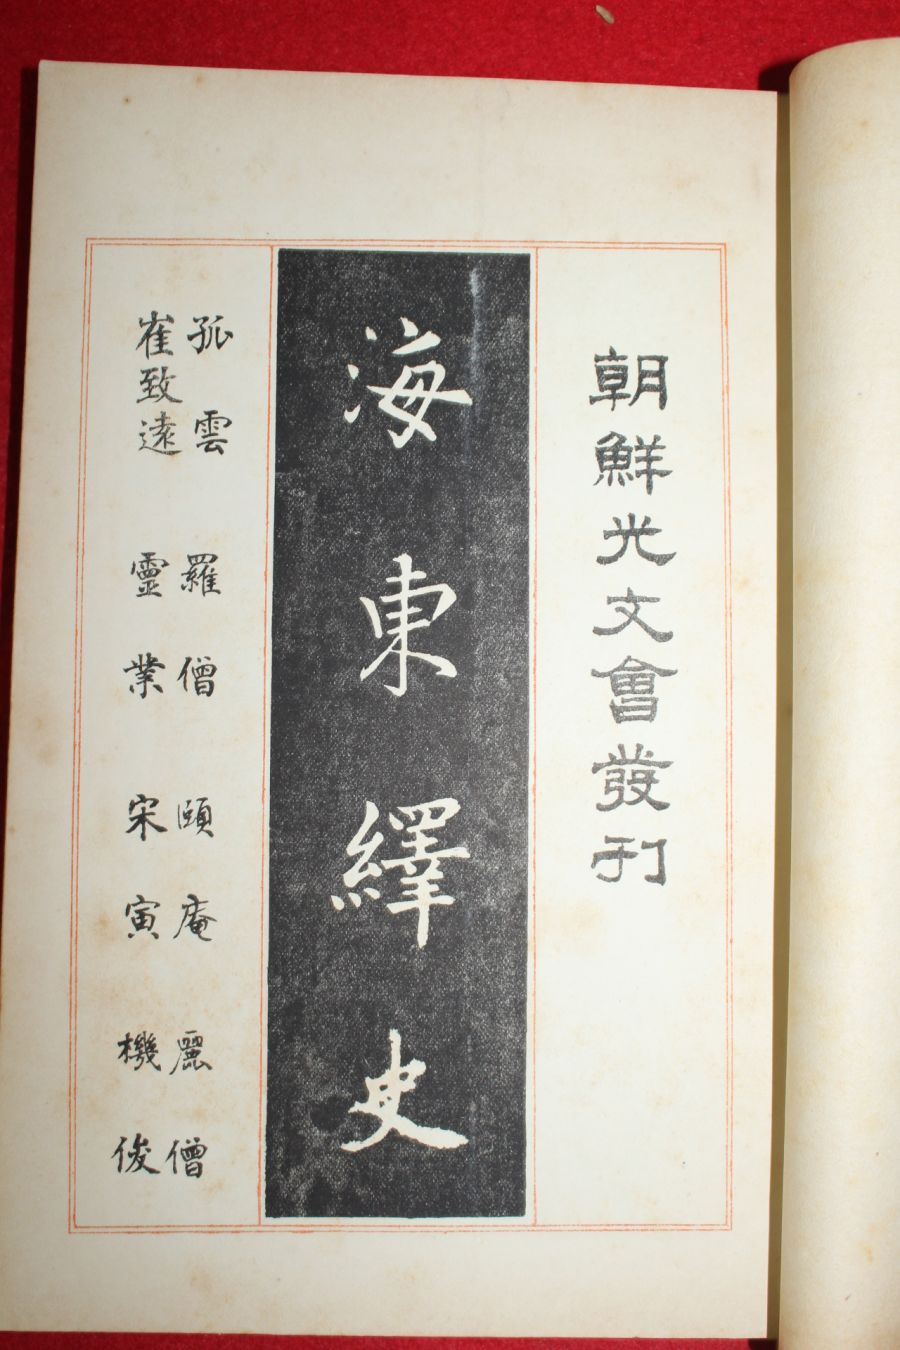 朝鮮光文會發刊
海東繹史
孤雲 崔致遠
羅僧 靈業
頤庵 宋寅
麗僧 機俊